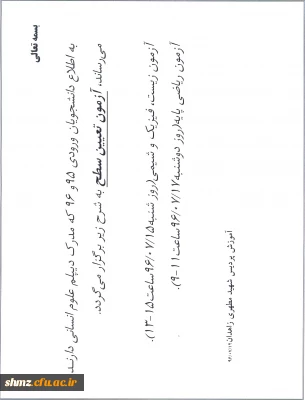 بسمه تعالی
به اطلاع دانشجویان ورودی ۹۵ و ۹۶ که مدرک دیپلم علوم انسانی دارند
می‌رساند، آزمون تعیین سطح به شرح زیر برگزار می‌گردد.
آزمون زیست، فیزیک و شیمی(روز شنبه ۹۶/۰۷/۱۵ ساعت ۱۵-۱۳).
آزمون ریاضی پایه(روز دوشنبه ۹۶/۰۷/۱۷ ساعت ۱۱-۹).
آموزش پردیس شهید مطهری زاهدان
shmz.cfu.ac.ir